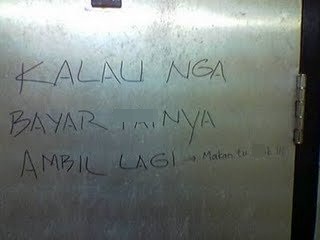 KALAU NGA
BAYAR NYA
AMBIL LAGI → Makan